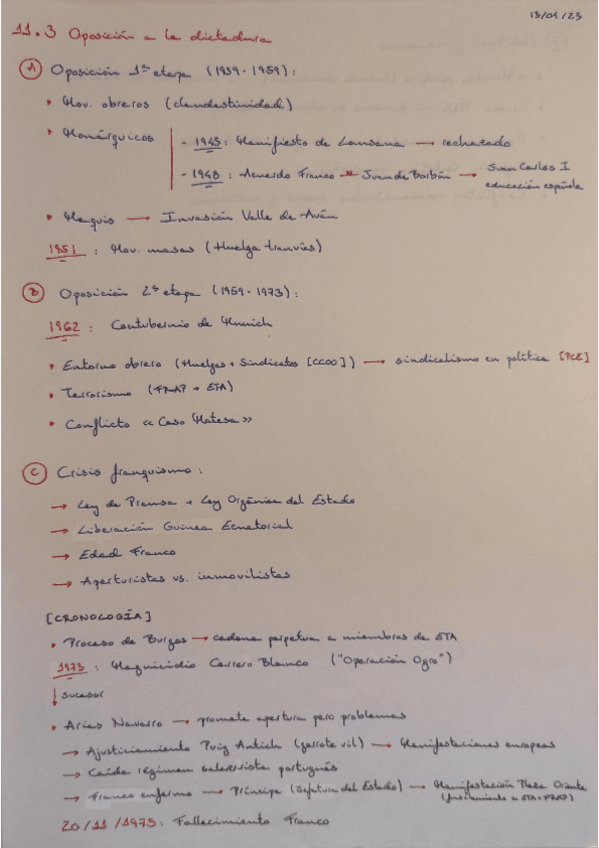 13/04/23
11.3 Oposición a la dictadura
A Oposición 1ª etapa (1939-1959):
• Mov. obreros (clandestinidad)
• Monárquicos
- 1945: Manifiesto de Lausana → rechazado
- 1948: Acuerdo Franco - Juan de Borbón → Juan Carlos I educación española
• Maquis → Invasión Valle de Arán
1951: Mov. masas (Huelga tranvías)
B Oposición 2ª etapa (1959-1973):
1962: Contubernio de Munich
• Entorno obrero (Huelgas + Sindicatos [CCOO]) → sindicalismo en política [PCE]
• Terrorismo (FRAP + ETA)
• Conflicto «Caso Matesa»
C Crisis franquismo:
→ Ley de Prensa + Ley Orgánica del Estado
→ Liberación Guinea Ecuatorial
→ Edad Franco
→ Aperturistas vs. inmovilistas
[CRONOLOGÍA]
• Proceso de Burgos → cadena perpetua a miembros de ETA
1973: Magnicidio Carrero Blanco ("Operación Ogro")
↓ sucesor
• Arias Navarro → promete apertura pero problemas
→ Ajusticiamiento Puig Antich (garrote vil) → Manifestaciones europeas
→ Caída régimen salazarista portugués
→ Franco enfermo → Príncipe (Jefatura del Estado) → Manifestación Plaza Oriente
(fusilamiento a ETA + FRAP)
20/11/1975: Fallecimiento Franco